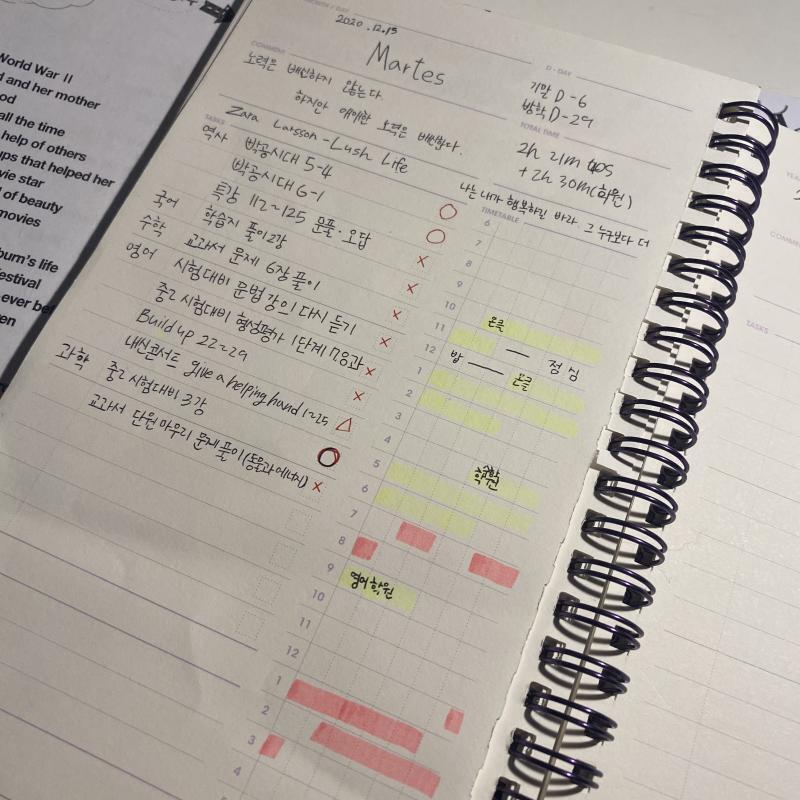 World War II
d and her mother
ood
all the time
help of others
ups that helped her
vie star
l of beauty
movies
burn's life
festival
ever be
en
MONTH / DAY
2020.12.15
Martes
COMMENT
노력은 배신하지 않는다.
하지만 애매한 노력은 배신한다.
D-DAY
기말 D-6
방학 D-29
TOTAL TIME
2h 21m 40s
+2h 30m(학원)
Zara Larsson - Lush Life
나는 내가 행복하길 바라. 그 누구보다 더
TASKS
역사 박공시대 5-4 ○
박공시대 6-1 ○
특강 112~125 문풀·오답 ×
국어 학습지 풀이 2강 ×
수학 교과서 문제 6장 풀이 ×
영어 시험대비 문법 강의 다시 듣기 ×
중2 시험대비 형성평가 1단계 7,8과 ×
Build up 22~29 ×
내신콘서트 give a helping hand 1~25 △
과학 중2 시험대비 3강 ○
교과서 단원 마무리 문제 풀이(동물과 에너지) ×
TIMETABLE
6
7
8
9
10
11 온클
12 밥 — 점심
1 온클
2
3
4
5 수학학원
6
7
8
9
10 영어학원
11
12
1
2
3
4
COMMENT
TASKS